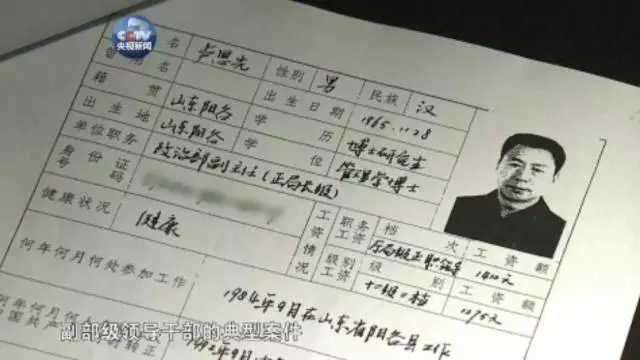 CCTV
央视新闻
姓名 卢恩光 性别 男 民族 汉
曾用名 出生日期 1965.11.28
籍贯 山东阳谷 学历 博士研究生
出生地 山东阳谷 学位 管理学博士
单位职务 政治部副主任(正局长级)
身份证号码
健康状况 健康
工资情况 职务工资 档次 工资额
正职 1410元
级别工资 级别 工资额
1275元
何年何月何处参加工作 1984年9月在山东省阳谷县工作
副部级领导干部的典型案件